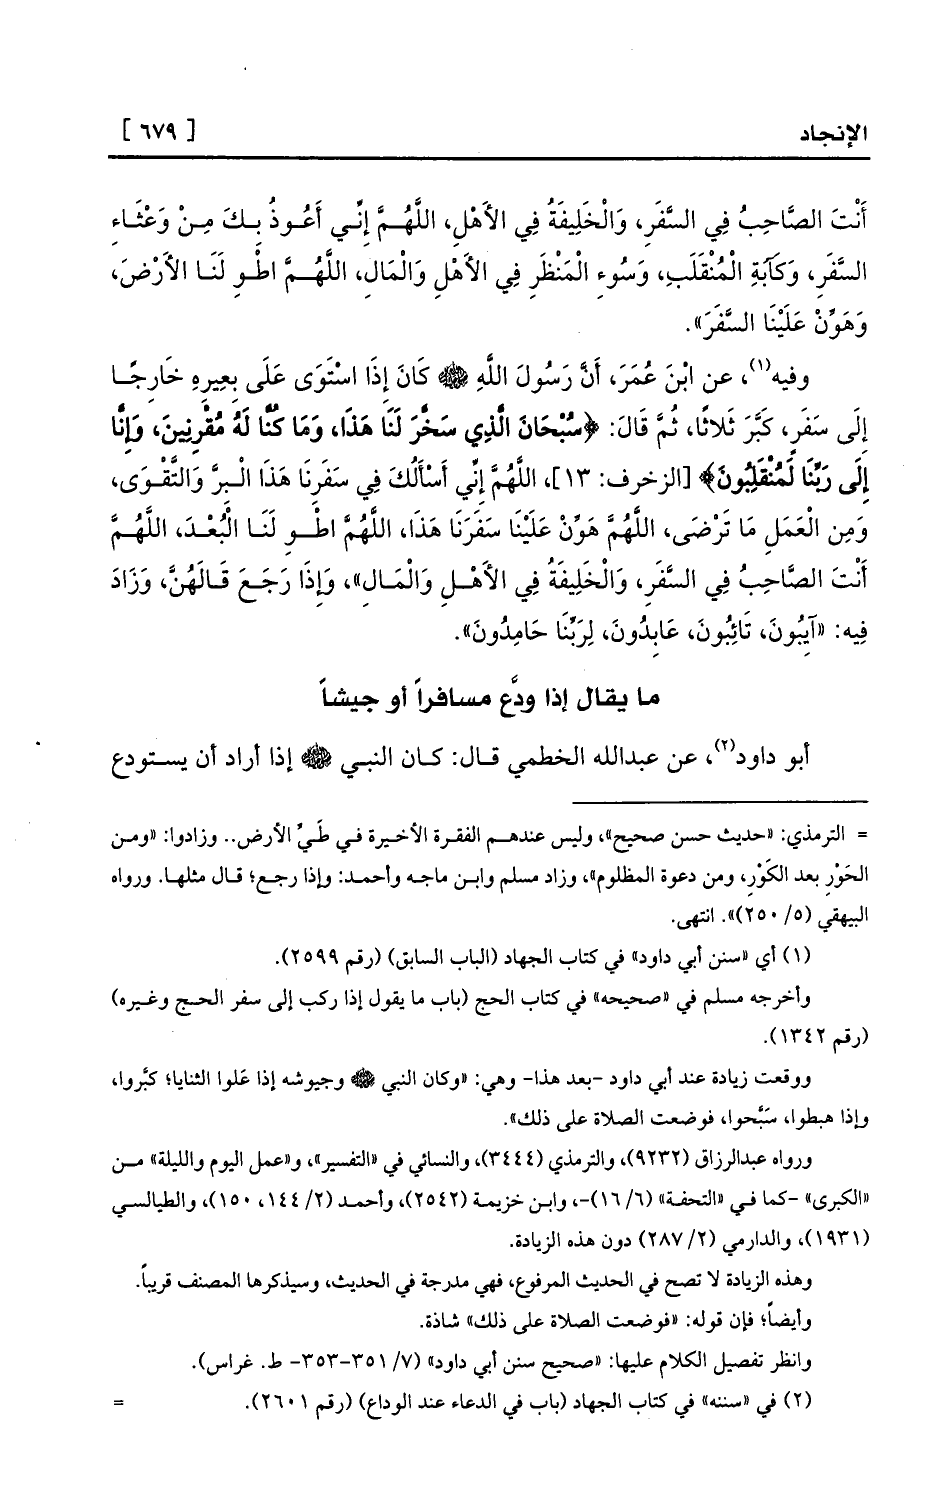 الإنجاد
[ ٦٧٩ ]
أَنْتَ الصَّاحِبُ فِي السَّفَرِ، وَالْخَلِيفَةُ فِي الأَهْلِ، اللَّهُمَّ إِنِّي أَعُوذُ بِكَ مِنْ وَعْثَاءِ
السَّفَرِ، وَكَآبَةِ الْمُنْقَلَبِ، وَسُوءِ الْمَنْظَرِ فِي الأَهْلِ وَالْمَالِ، اللَّهُمَّ اطْوِ لَنَا الأَرْضَ،
وَهَوِّنْ عَلَيْنَا السَّفَرَ».
وفيه(١)، عن ابْنِ عُمَرَ، أَنَّ رَسُولَ اللَّهِ ﷺ كَانَ إِذَا اسْتَوَى عَلَى بَعِيرِهِ خَارِجًا
إِلَى سَفَرٍ، كَبَّرَ ثَلاثًا، ثُمَّ قَالَ: ﴿سُبْحَانَ الَّذِي سَخَّرَ لَنَا هَذَا، وَمَا كُنَّا لَهُ مُقْرِنِينَ، وَإِنَّا
إِلَى رَبِّنَا لَمُنْقَلِبُونَ﴾ [الزخرف: ١٣]، اللَّهُمَّ إِنِّي أَسْأَلُكَ فِي سَفَرِنَا هَذَا الْبِرَّ وَالتَّقْوَى،
وَمِنَ الْعَمَلِ مَا تَرْضَى، اللَّهُمَّ هَوِّنْ عَلَيْنَا سَفَرَنَا هَذَا، اللَّهُمَّ اطْوِ لَنَا الْبُعْدَ، اللَّهُمَّ
أَنْتَ الصَّاحِبُ فِي السَّفَرِ، وَالْخَلِيفَةُ فِي الأَهْلِ وَالْمَالِ»، وَإِذَا رَجَعَ قَالَهُنَّ، وَزَادَ
فِيهِ: «آيِبُونَ، تَائِبُونَ، عَابِدُونَ، لِرَبِّنَا حَامِدُونَ».
ما يقال إذا ودَّع مسافراً أو جيشاً
أبو داود(٢)، عن عبدالله الخطمي قال: كان النبي ﷺ إذا أراد أن يستودع
= الترمذي: «حديث حسن صحيح»، وليس عندهم الفقرة الأخيرة في طَيِّ الأرض.. وزادوا: «ومن
الحَوْرِ بعد الكَوْرِ، ومن دعوة المظلوم»، وزاد مسلم وابن ماجه وأحمد: وإذا رجع؛ قال مثلها. ورواه
البيهقي (٥/ ٢٥٠)». انتهى.
(١) أي «سنن أبي داود» في كتاب الجهاد (الباب السابق) (رقم ٢٥٩٩).
وأخرجه مسلم في «صحيحه» في كتاب الحج (باب ما يقول إذا ركب إلى سفر الحج وغيره)
(رقم ١٣٤٢).
ووقعت زيادة عند أبي داود -بعد هذا- وهي: «وكان النبي ﷺ وجيوشه إذا عَلوا الثنايا؛ كبَّروا،
وإذا هبطوا، سَبَّحوا، فوضعت الصلاة على ذلك».
ورواه عبدالرزاق (٩٢٣٢)، والترمذي (٣٤٤٤)، والنسائي في «التفسير»، و«عمل اليوم والليلة» من
«الكبرى» -كما في «التحفة» (٦/ ١٦)-، وابن خزيمة (٢٥٤٢)، وأحمد (٢/ ١٤٤، ١٥٠)، والطيالسي
(١٩٣١)، والدارمي (٢/ ٢٨٧) دون هذه الزيادة.
وهذه الزيادة لا تصح في الحديث المرفوع، فهي مدرجة في الحديث، وسيذكرها المصنف قريباً.
وأيضاً؛ فإن قوله: «فوضعت الصلاة على ذلك» شاذة.
وانظر تفصيل الكلام عليها: «صحيح سنن أبي داود» (٧/ ٣٥١-٣٥٣- ط. غراس).
(٢) في «سننه» في كتاب الجهاد (باب في الدعاء عند الوداع) (رقم ٢٦٠١). =